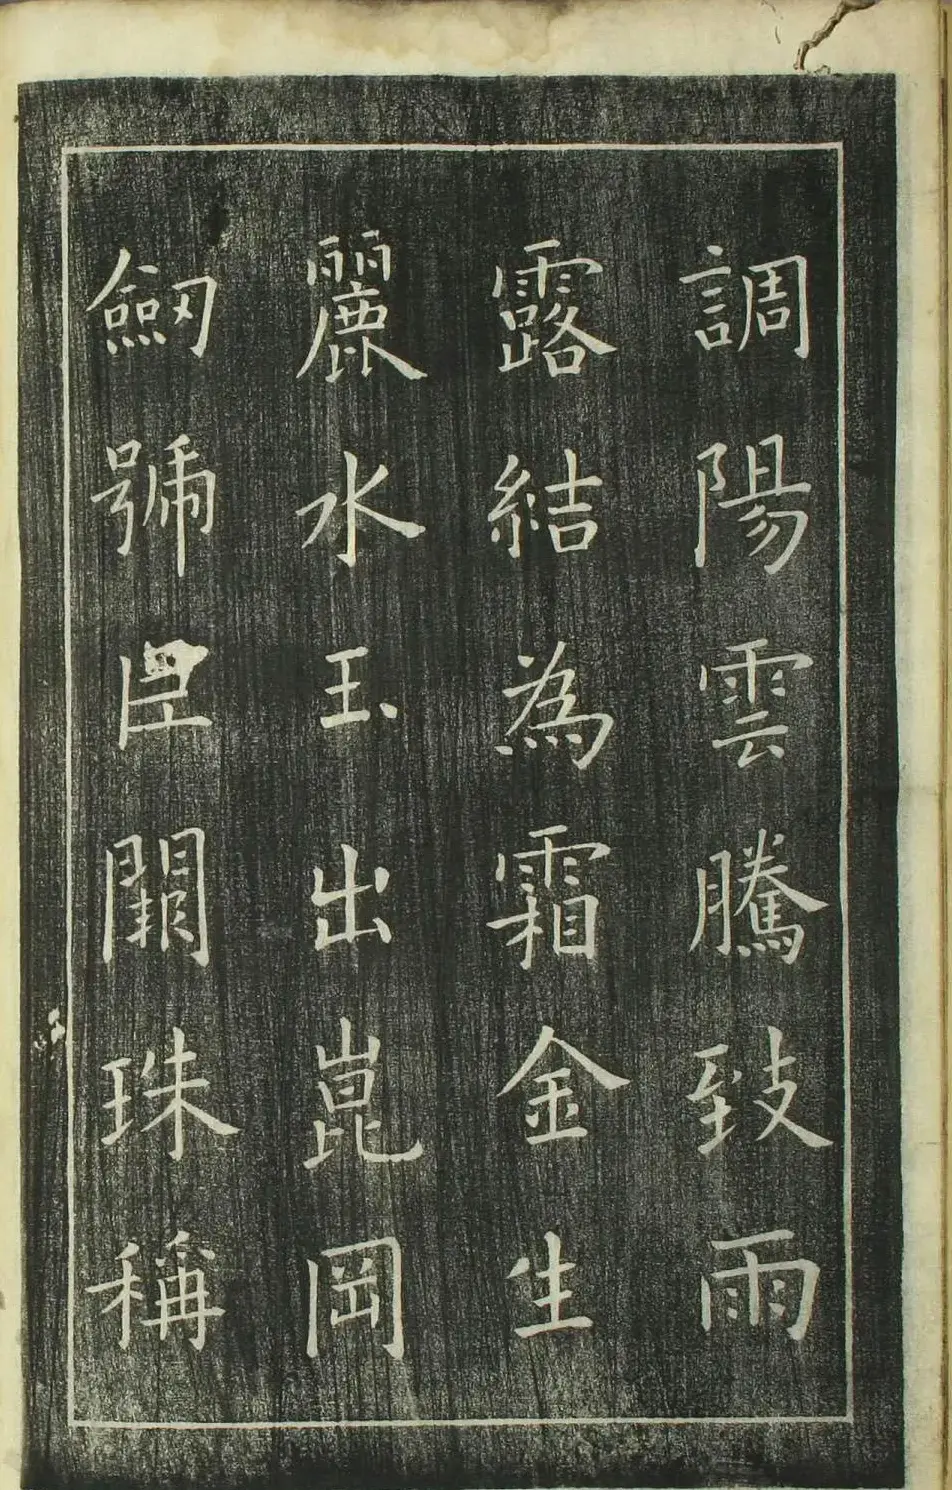 調陽雲騰致雨
露結為霜金生
麗水玉出崑岡
劔號巨闕珠稱